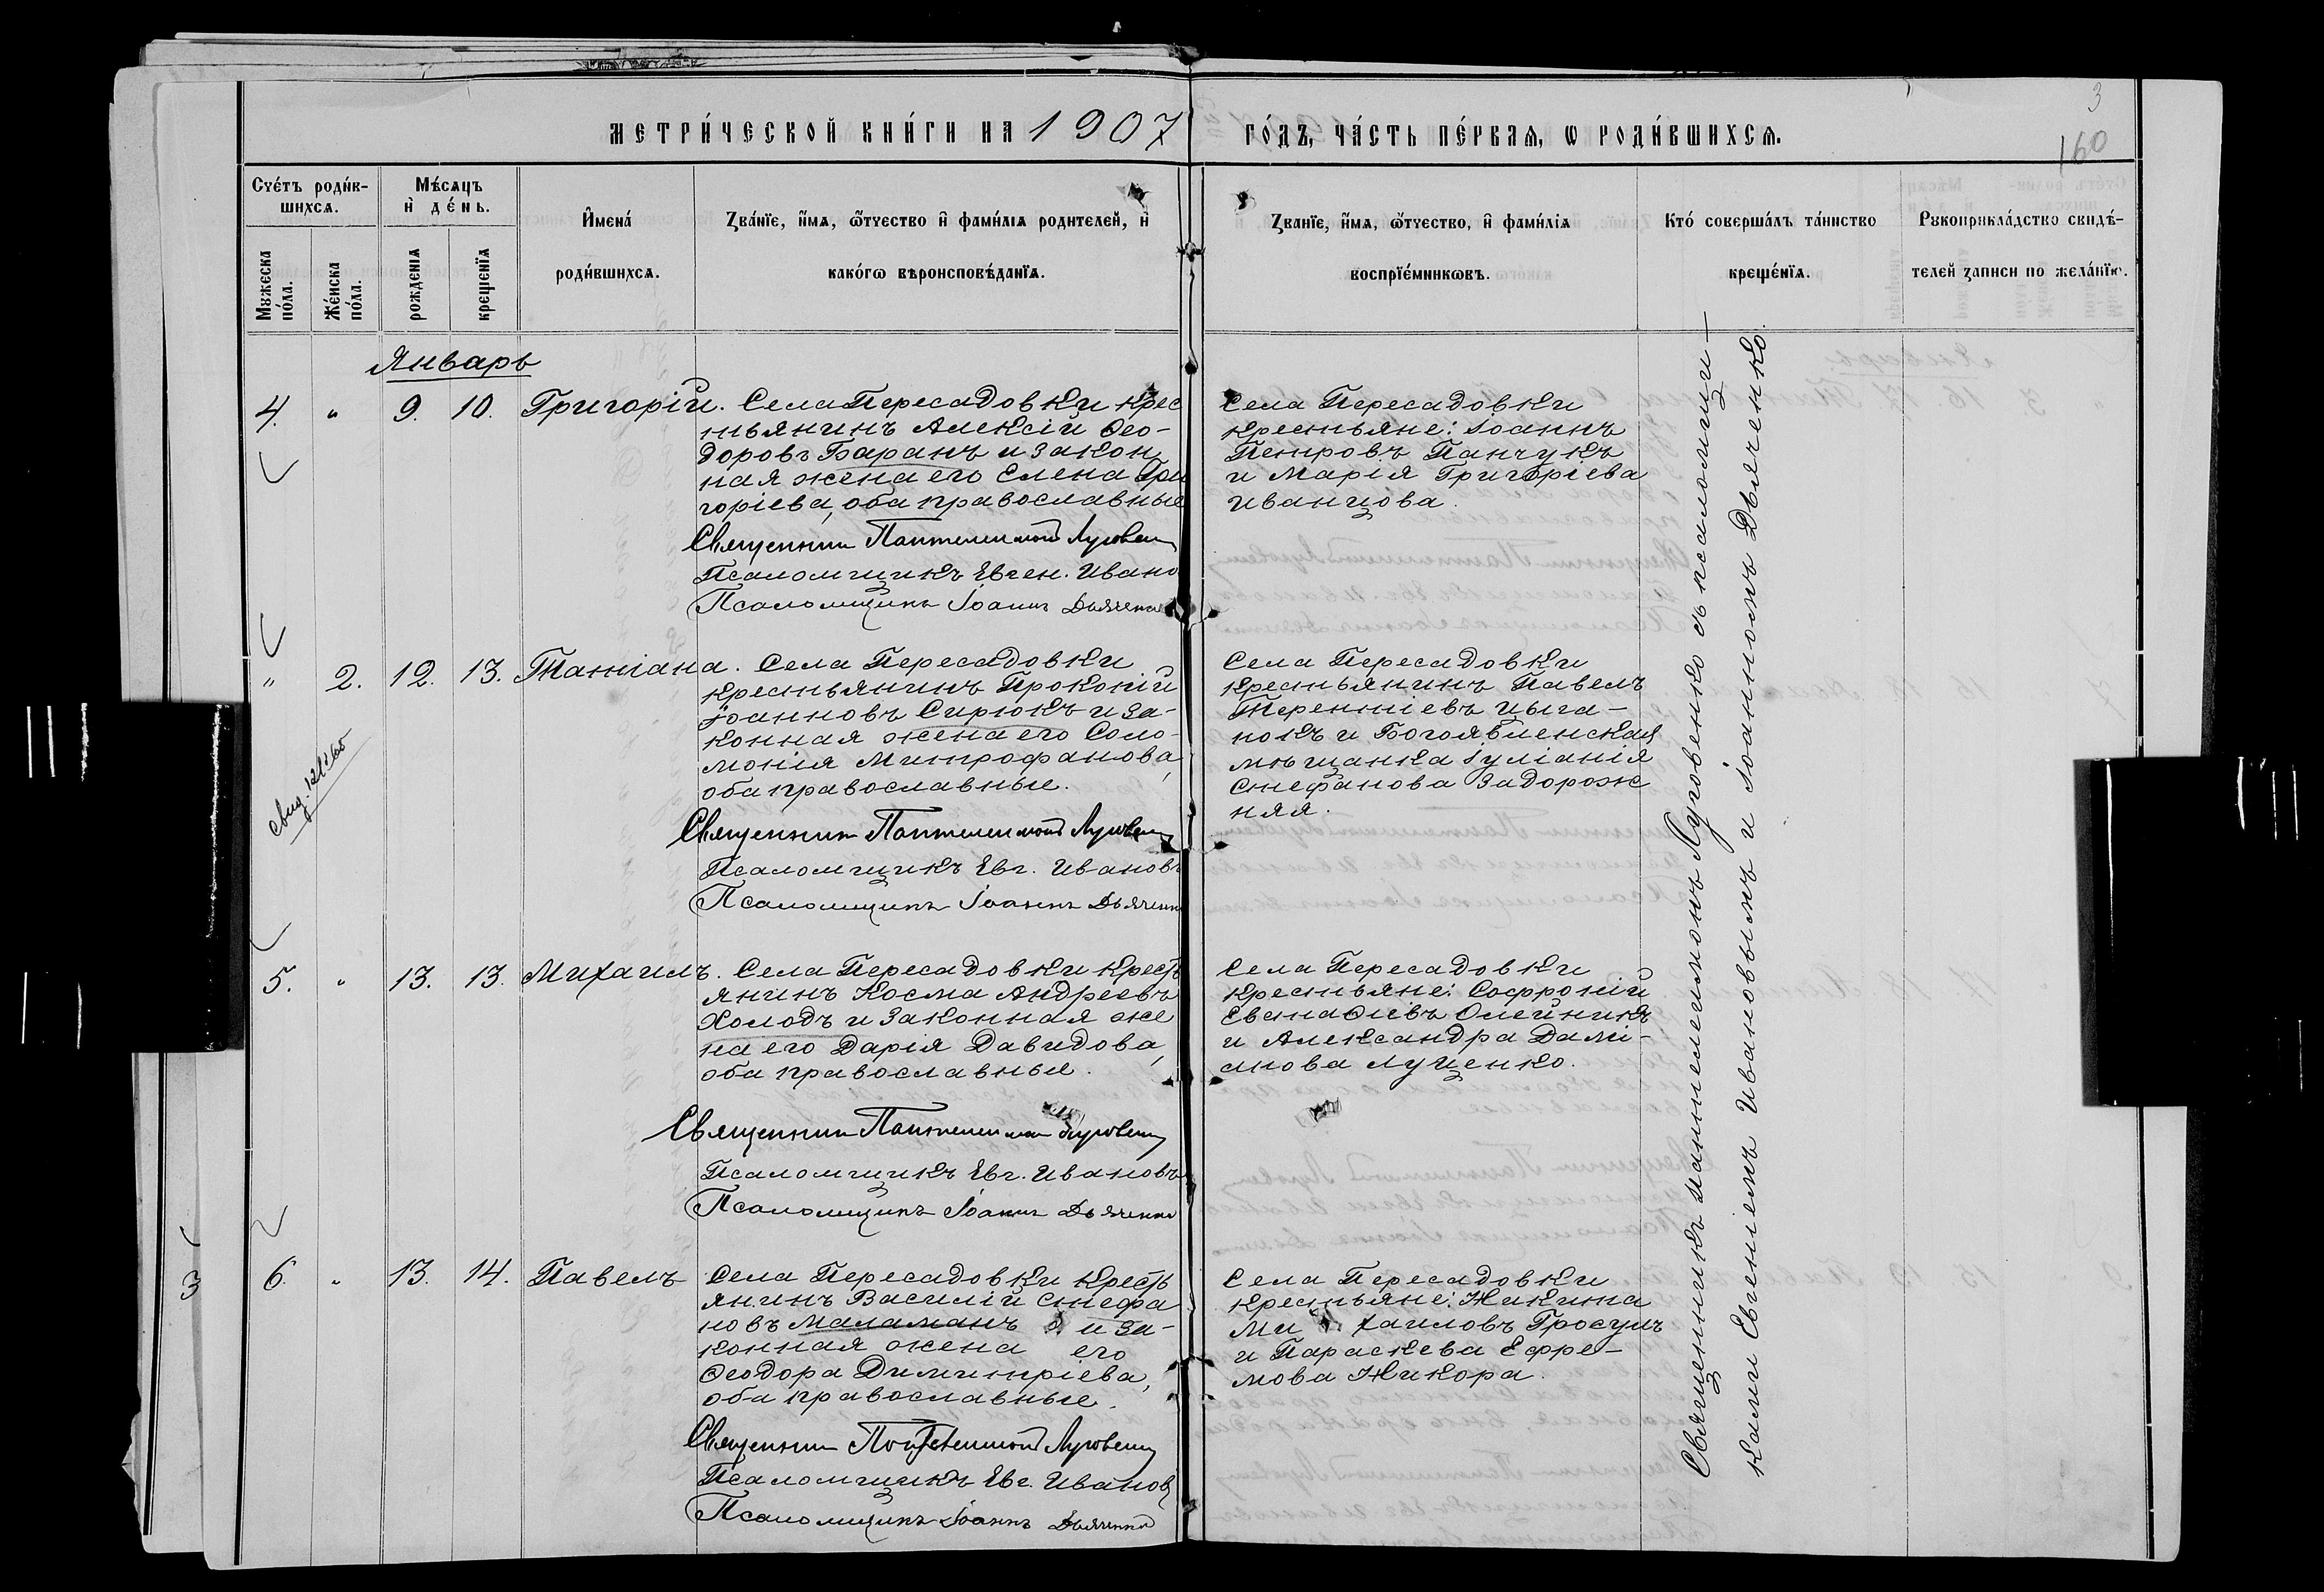 3
160
МЕТРИ́ЧЕСКОЙ КНИ́ГИ НА 1907
ГО́ДЪ, ЧА́СТЬ ПЕ́РВАЯ, Ѡ РОДИ́ВШИХСѦ.
Счéтъ роди́в-
шихсѧ.
Мꙋжеска пóла.
Жéнска пóла.
Мѣ́сѧцъ
и҆ дéнь.
рожденїѧ
крещенїѧ
И҆мена́
роди́вшихсѧ.
Зва́нїе, и҆́мѧ, ѻ҆́тчество и҆ фами́лїѧ родителей, и҆
како́гѡ вѣроисповѣ́данїѧ.
Зва́нїе, и҆́мѧ, ѻ҆́тчество, и҆ фами́лїѧ
воспрїе́мникѡвъ.
Кто́ соверша́лъ та́инство
креще́нїѧ.
Рꙋкоприкла́дство свидѣ́-
телей записи по жела́нїю.
Январь
4. " 9. 10. Григорій. Села Пересадовки крес
тьянинъ Алексій Ѳео-
доровъ Баранъ и закон
ная жена его Елена Гри
горіева, оба православные
Священник Пантелеимон Луговен
Псаломщикъ Евген. Ивано
Псаломщикъ Іоаннъ Дьяченко
Села Пересадовки
крестьяне: Іоаннъ
Петровъ Панчукъ
и Марія Григоріева
Иванцова.
" 2. 12. 13. Татіана. Села Пересадовки
крестьянинъ Прокопій
Іоанновъ Сирюкъ и за-
конная жена его Соло-
монія Митрофанова,
оба православные.
Священник Пантелеимон Луговен
Псаломщикъ Евг. Ивановъ
Псаломщикъ Іоаннъ Дьяченко
Села Пересадовки
крестьянинъ Павелъ
Терентіевъ Цыга-
нокъ и Богоявленская
мѣщанка Іуліанія
Стефанова Задорож
няя.
5. " 13. 13. Михаилъ. Села Пересадовки кресть
янинъ Косма Андреевъ
Холодъ и законная же
на его Дарія Давидова,
оба православные.
Священник Пантелеимон Луговен
Псаломщикъ Евг. Ивановъ
Псаломщикъ Іоаннъ Дьяченко
Села Пересадовки
крестьяне: Софроній
Евстафіевъ Олейникъ
и Александра Дамі-
анова Луценко.
3 6. " 13. 14. Павелъ Села Пересадовки кресть
янинъ Василій Стефа
новъ Маламанъ и за-
конная жена его
Ѳеодора Димитріева,
оба православные.
Священник Пантелеимон Луговен
Псаломщикъ Евг. Иванов
Псаломщикъ Іоаннъ Дьяченко
Села Пересадовки
крестьяне: Никита
Михаиловъ Гросулъ
и Параскева Ефре-
мова Жикора.
Священникъ Пантелеимонъ Луговенко съ псаломщи-
ками Евгеніемъ Ивановымъ и Іоанномъ Дьяченко.